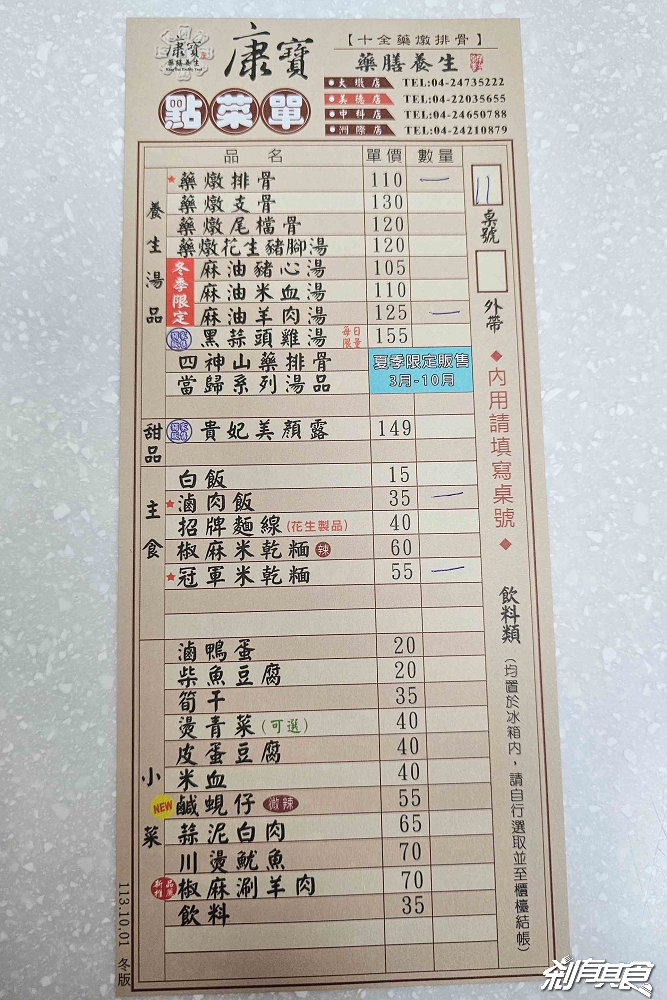 康寶
藥膳養生
康寶
【十全藥燉排骨】
藥膳養生
點菜單
大墩店 TEL:04-24735222
美德店 TEL:04-22035655
中科店 TEL:04-24650788
洲際店 TEL:04-24210879
品名 單價 數量
養生湯品
藥燉排骨 110 一
藥燉支骨 130
藥燉尾檔骨 120
藥燉花生豬腳湯 120
冬季限定
麻油豬心湯 105
麻油米血湯 110
麻油羊肉湯 125 一
黑蒜頭雞湯 每日限量 155
四神山藥排骨
當歸系列湯品
夏季限定販售
3月-10月
甜品
貴妃美顏露 149
主食
白飯 15
滷肉飯 35 一
招牌麵線(花生製品) 40
椒麻米乾麵 辣 60
冠軍米乾麵 55 一
小菜
滷鴨蛋 20
柴魚豆腐 20
筍干 35
燙青菜(可選) 40
皮蛋豆腐 40
米血 40
NEW 鹹蜆仔 微辣 55
蒜泥白肉 65
川燙魷魚 70
新品推薦 椒麻涮羊肉 70
飲料 35
11
桌號
外帶
◆內用請填寫桌號◆
飲料類
(均置於冰箱內,請自行選取並至櫃檯結帳)
113.10.01 冬版
剎有其食